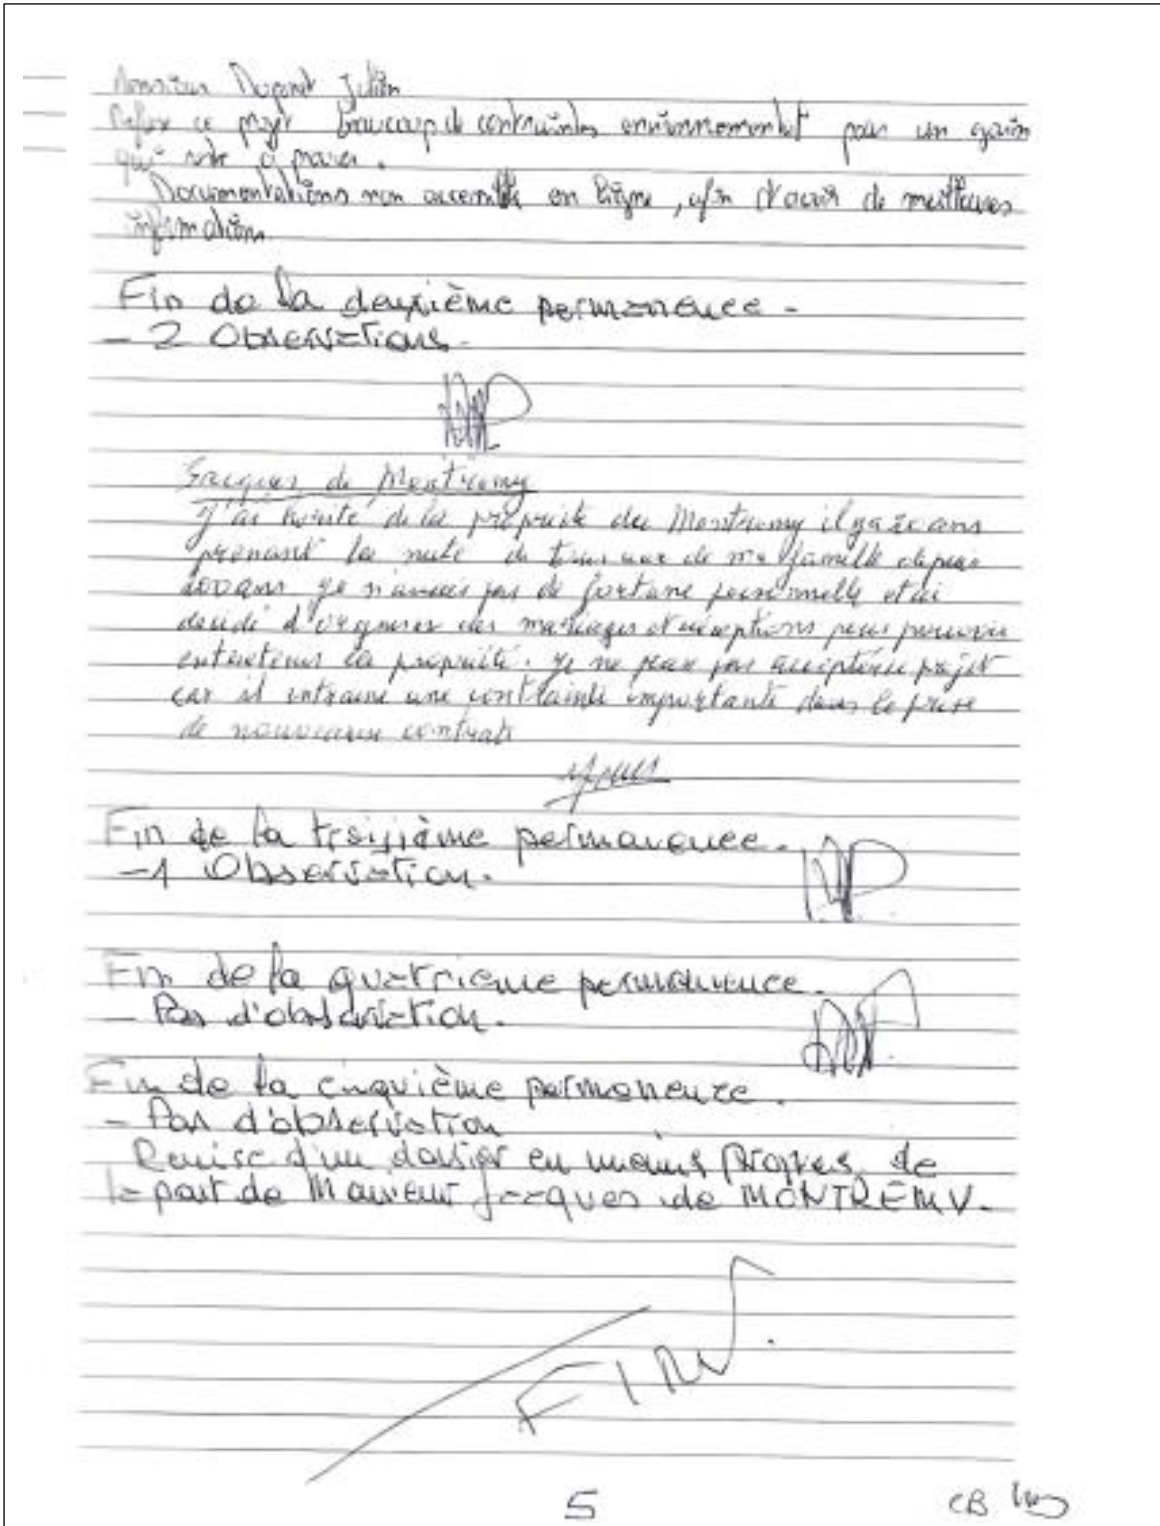 Monsieur Dupont Julien
Refuse ce projet beaucoup de contraintes environnemental pour un gain
qui reste à prouver.
Documentations non accessible en ligne, afin d'avoir de meilleures
informations
Fin de la deuxième permanence -
- 2 Observations.
Jacques de Montremy
J'ai hérité de la propriété de Montremy il y a 20 ans
prenant la suite de tous ceux de ma famille depuis
200 ans je n'avais pas de fortune personnelle et ai
décidé d'organiser des mariages et réceptions pour pouvoir
entretenir la propriété. Je ne peux pas accepter ce projet
car il entraine une contrainte importante dans la prise
de nouveaux contrats
Fin de la troisième permanence.
-1 Observation.
Fin de la quatrième permanence.
- Pas d'observation.
Fin de la cinquième permanence.
- Pas d'observation
Remise d'un dossier en mains propres de
la part de Monsieur Jacques de MONTREMY.
FIN.
5
CB